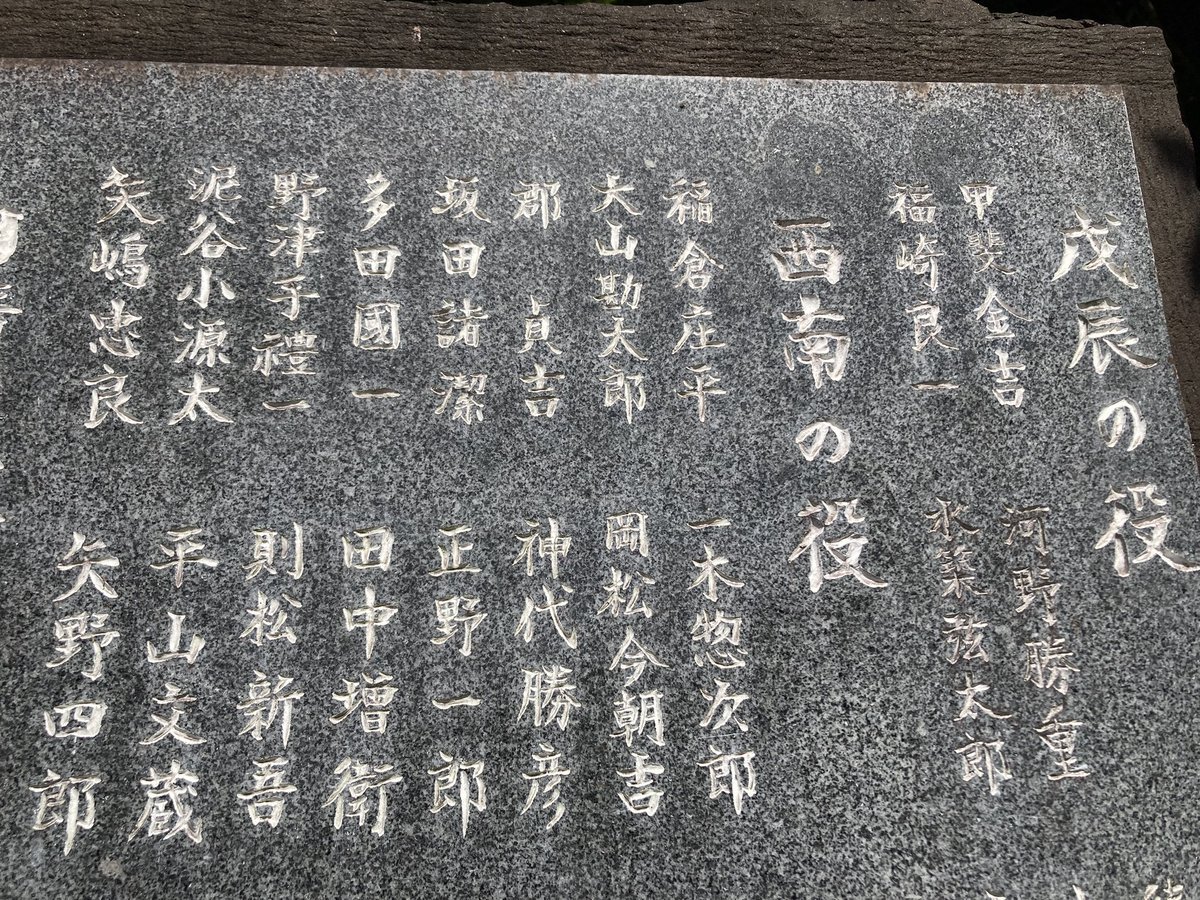 戊辰の役
甲斐金吉 河野勝重
福崎良一
西南の役
稲倉庄平 一木惣次郎
大山勘太郎 岡松今朝吉
郡 貞吉 神代勝彦
坂田諸潔 正野一郎
多田國一 田中増衛
野津手禮一 則松新吾
泥谷小源太 平山文蔵
矢嶋忠良 矢野四郎